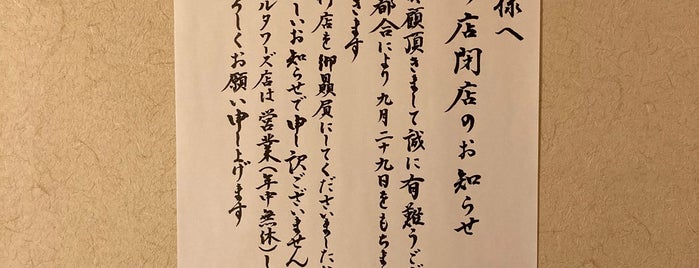 様へ
店閉店のお知らせ
顧頂きまして誠に有難うご
都合により九月二十九日をもちま
きます
店を御贔屓にしてくださいました
しいお知らせで申し訳ございません
ルタワーズ店は営業(年中無休)し
ろしくお願い申し上げます